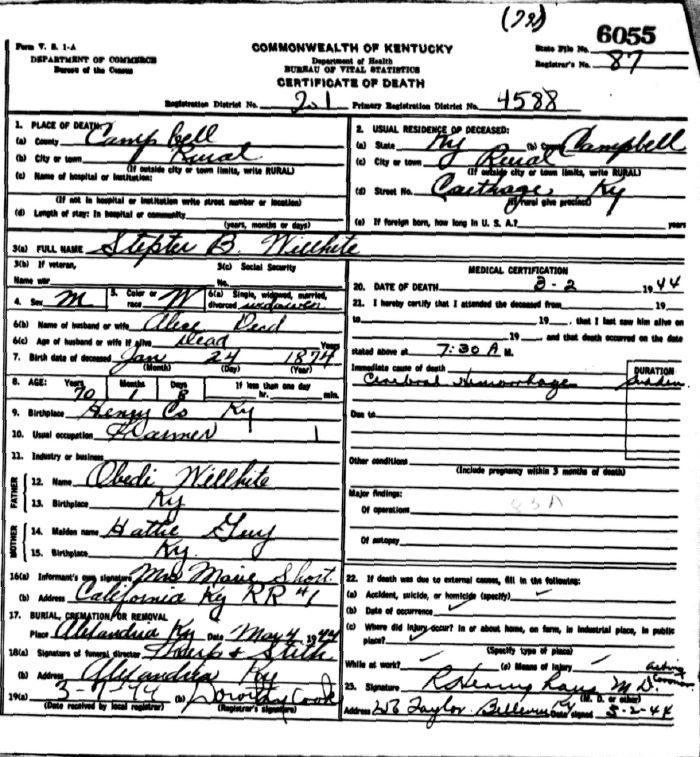 (79)
6055
Form V. S. 1-A
DEPARTMENT OF COMMERCE
Bureau of the Census
COMMONWEALTH OF KENTUCKY
Department of Health
BUREAU OF VITAL STATISTICS
CERTIFICATE OF DEATH
State File No.
Registrar's No. 87
Registration District No. 201 Primary Registration District No. 4588
1. PLACE OF DEATH:
(a) County Campbell
(b) City or town Rural
(If outside city or town limits, write RURAL)
(c) Name of hospital or institution:
(If not in hospital or institution write street number or location)
(d) Length of stay: In hospital or community
(years, months or days)
2. USUAL RESIDENCE OF DECEASED:
(a) State Ky (b) County Campbell
(c) City or town Rural
(If outside city or town limits, write RURAL)
(d) Street No. Carthage, Ky
(If rural give precinct)
(e) If foreign born, how long in U. S. A.? years
3(a) FULL NAME Stepter B. Willhite
3(b) If veteran,
Name war
3(c) Social Security
No.
4. Sex M 5. Color or race W 6(a) Single, widowed, married, divorced widower
6(b) Name of husband or wife Alice Dead
6(c) Age of husband or wife if alive Dead Years
7. Birth date of deceased Jan 24 1874
(Month) (Day) (Year)
8. AGE: Years Months Days If less than one day
70 1 8 hr. min.
9. Birthplace Henry Co Ky
10. Usual occupation Farmer 1
11. Industry or business
FATHER
12. Name Obedi Willhite
13. Birthplace Ky
MOTHER
14. Maiden name Hattie Guy
15. Birthplace Ky.
16(a) Informant's own signature Mrs Marie Short
(b) Address California Ky RR #1
17. BURIAL, CREMATION OR REMOVAL
Place Alexandria Ky Date May 4, 1944
18(a) Signature of funeral director Tharp & Stith
(b) Address Alexandria Ky
19(a) 3-7-44 (b) Dorothy Cook
(Date received by local registrar) (Registrar's signature)
MEDICAL CERTIFICATION
20. DATE OF DEATH 3-2 1944
21. I hereby certify that I attended the deceased from 19
to 19 , that I last saw him alive on
19 , and that death occurred on the date
stated above at 7:30 A M.
Immediate cause of death
Cerebral Hemorrhage
DURATION
Sudden
Due to
Other conditions
(Include pregnancy within 3 months of death)
Major findings:
83A
Of operations
Of autopsy
22. If death was due to external causes, fill in the following:
(a) Accident, suicide, or homicide (specify)
(b) Date of occurrence
(c) Where did injury occur? In or about home, on farm, in industrial place, in public
place?
(Specify type of place)
While at work? (e) Means of injury
Acting
Coroner
23. Signature M D.
(M. D. or other)
Address Taylor Bellevue Ky Date signed 3-2-44